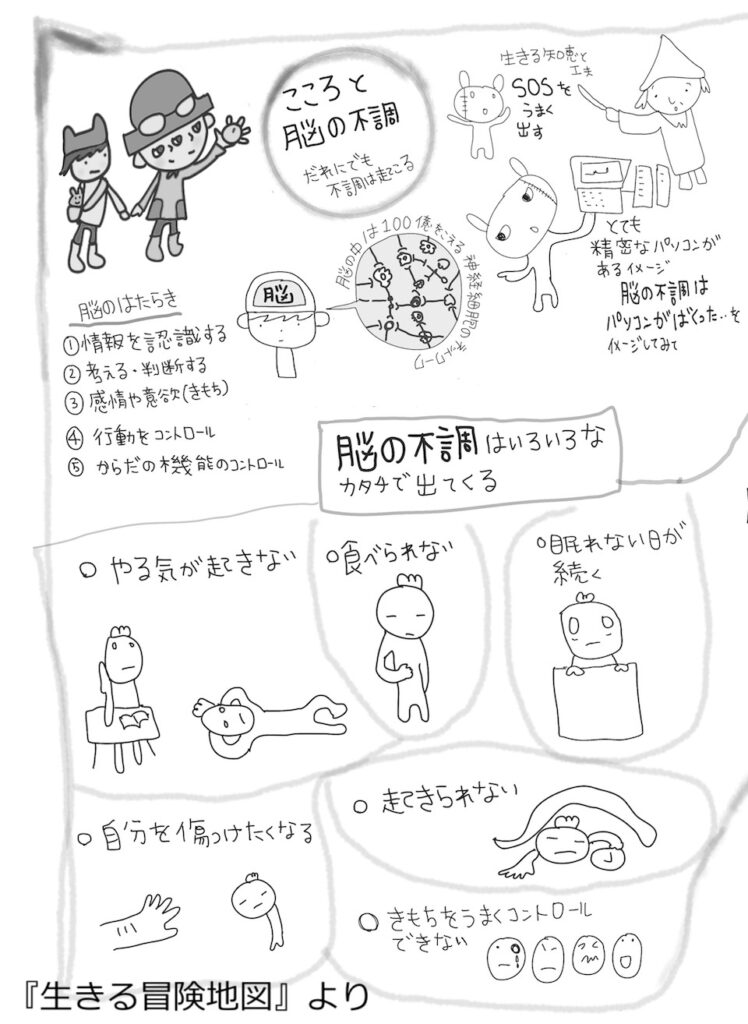 こころと
脳の不調
だれにでも
不調は起こる
生きる知恵と
工夫
SOSを
うまく
出す
とても
精密なパソコンが
あるイメージ
脳の不調は
パソコンがばぐった‥を
イメージしてみて
脳
脳の中は100億をこえる神経細胞のネットワーク
脳のはたらき
①情報を認識する
②考える・判断する
③感情や意欲(きもち)
④行動をコントロール
⑤からだの機能のコントロール
脳の不調はいろいろな
カタチで出てくる
○やる気が起きない
○食べられない
○眠れない日が
続く
○自分を傷つけたくなる
○起きられない
○きもちをうまくコントロール
できない
『生きる冒険地図』より